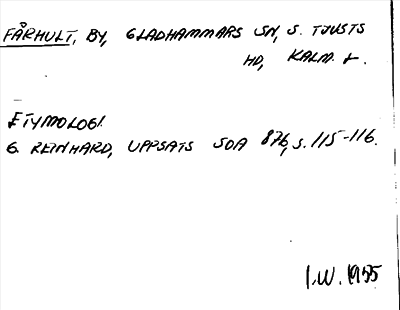 FÅRHULT, BY, GLADHAMMARS SN, S. TJUSTS
HD, KALM. L.
ETYMOLOGI.
G. REINHARD, UPPSATS SOA 876, S. 115-116.
I.W. 1955